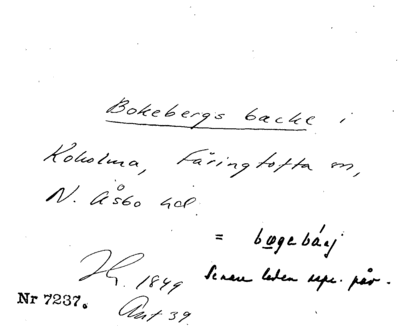 Bokebergs backe i
Koholma, Färingtofta sn,
N. Åsbo hd.
= bøgebárj
Senare leden
1849
Nr 7237.
Ant 39